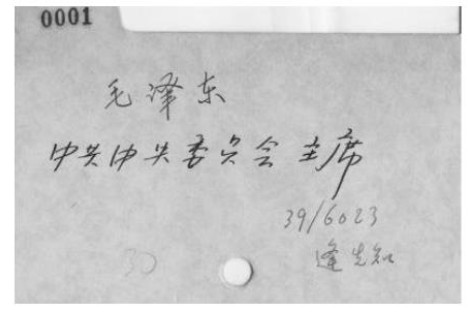 0001
毛泽东
中共中央委员会主席
39/6023
逄先知
30